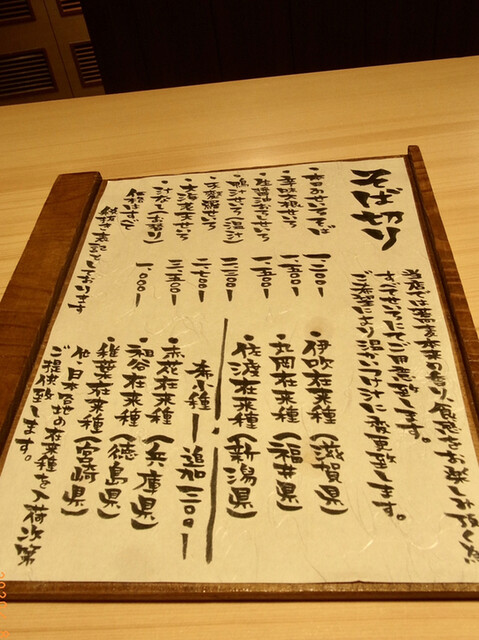 そば切り
当店では蕎麦本来の香り、食感をお楽しみ頂く為
すべてせいろにてご用意致します。
ご希望により温かいつけ汁に変更致します。
・本日のせいろそば 一二〇〇-
・辛味大根せいろ 一五〇〇-
せいろ 一五〇〇-
・鴨汁せいろ(温汁) 二三〇〇-
・天ざるせいろ 二七〇〇-
・大海老天せいろ 三五〇〇-
・汁なし(お替り) 一〇〇〇-
価格はすべて
税抜き表記としております
・伊吹在来種(滋賀県)
・丸岡在来種(福井県)
・佐渡在来種(新潟県)
希小種 - 追加二〇〇-
・赤花在来種(兵庫県)
・祖谷在来種(徳島県)
・椎葉在来種(宮崎県)
他、日本各地の在来種を入荷次第
ご提供致します。